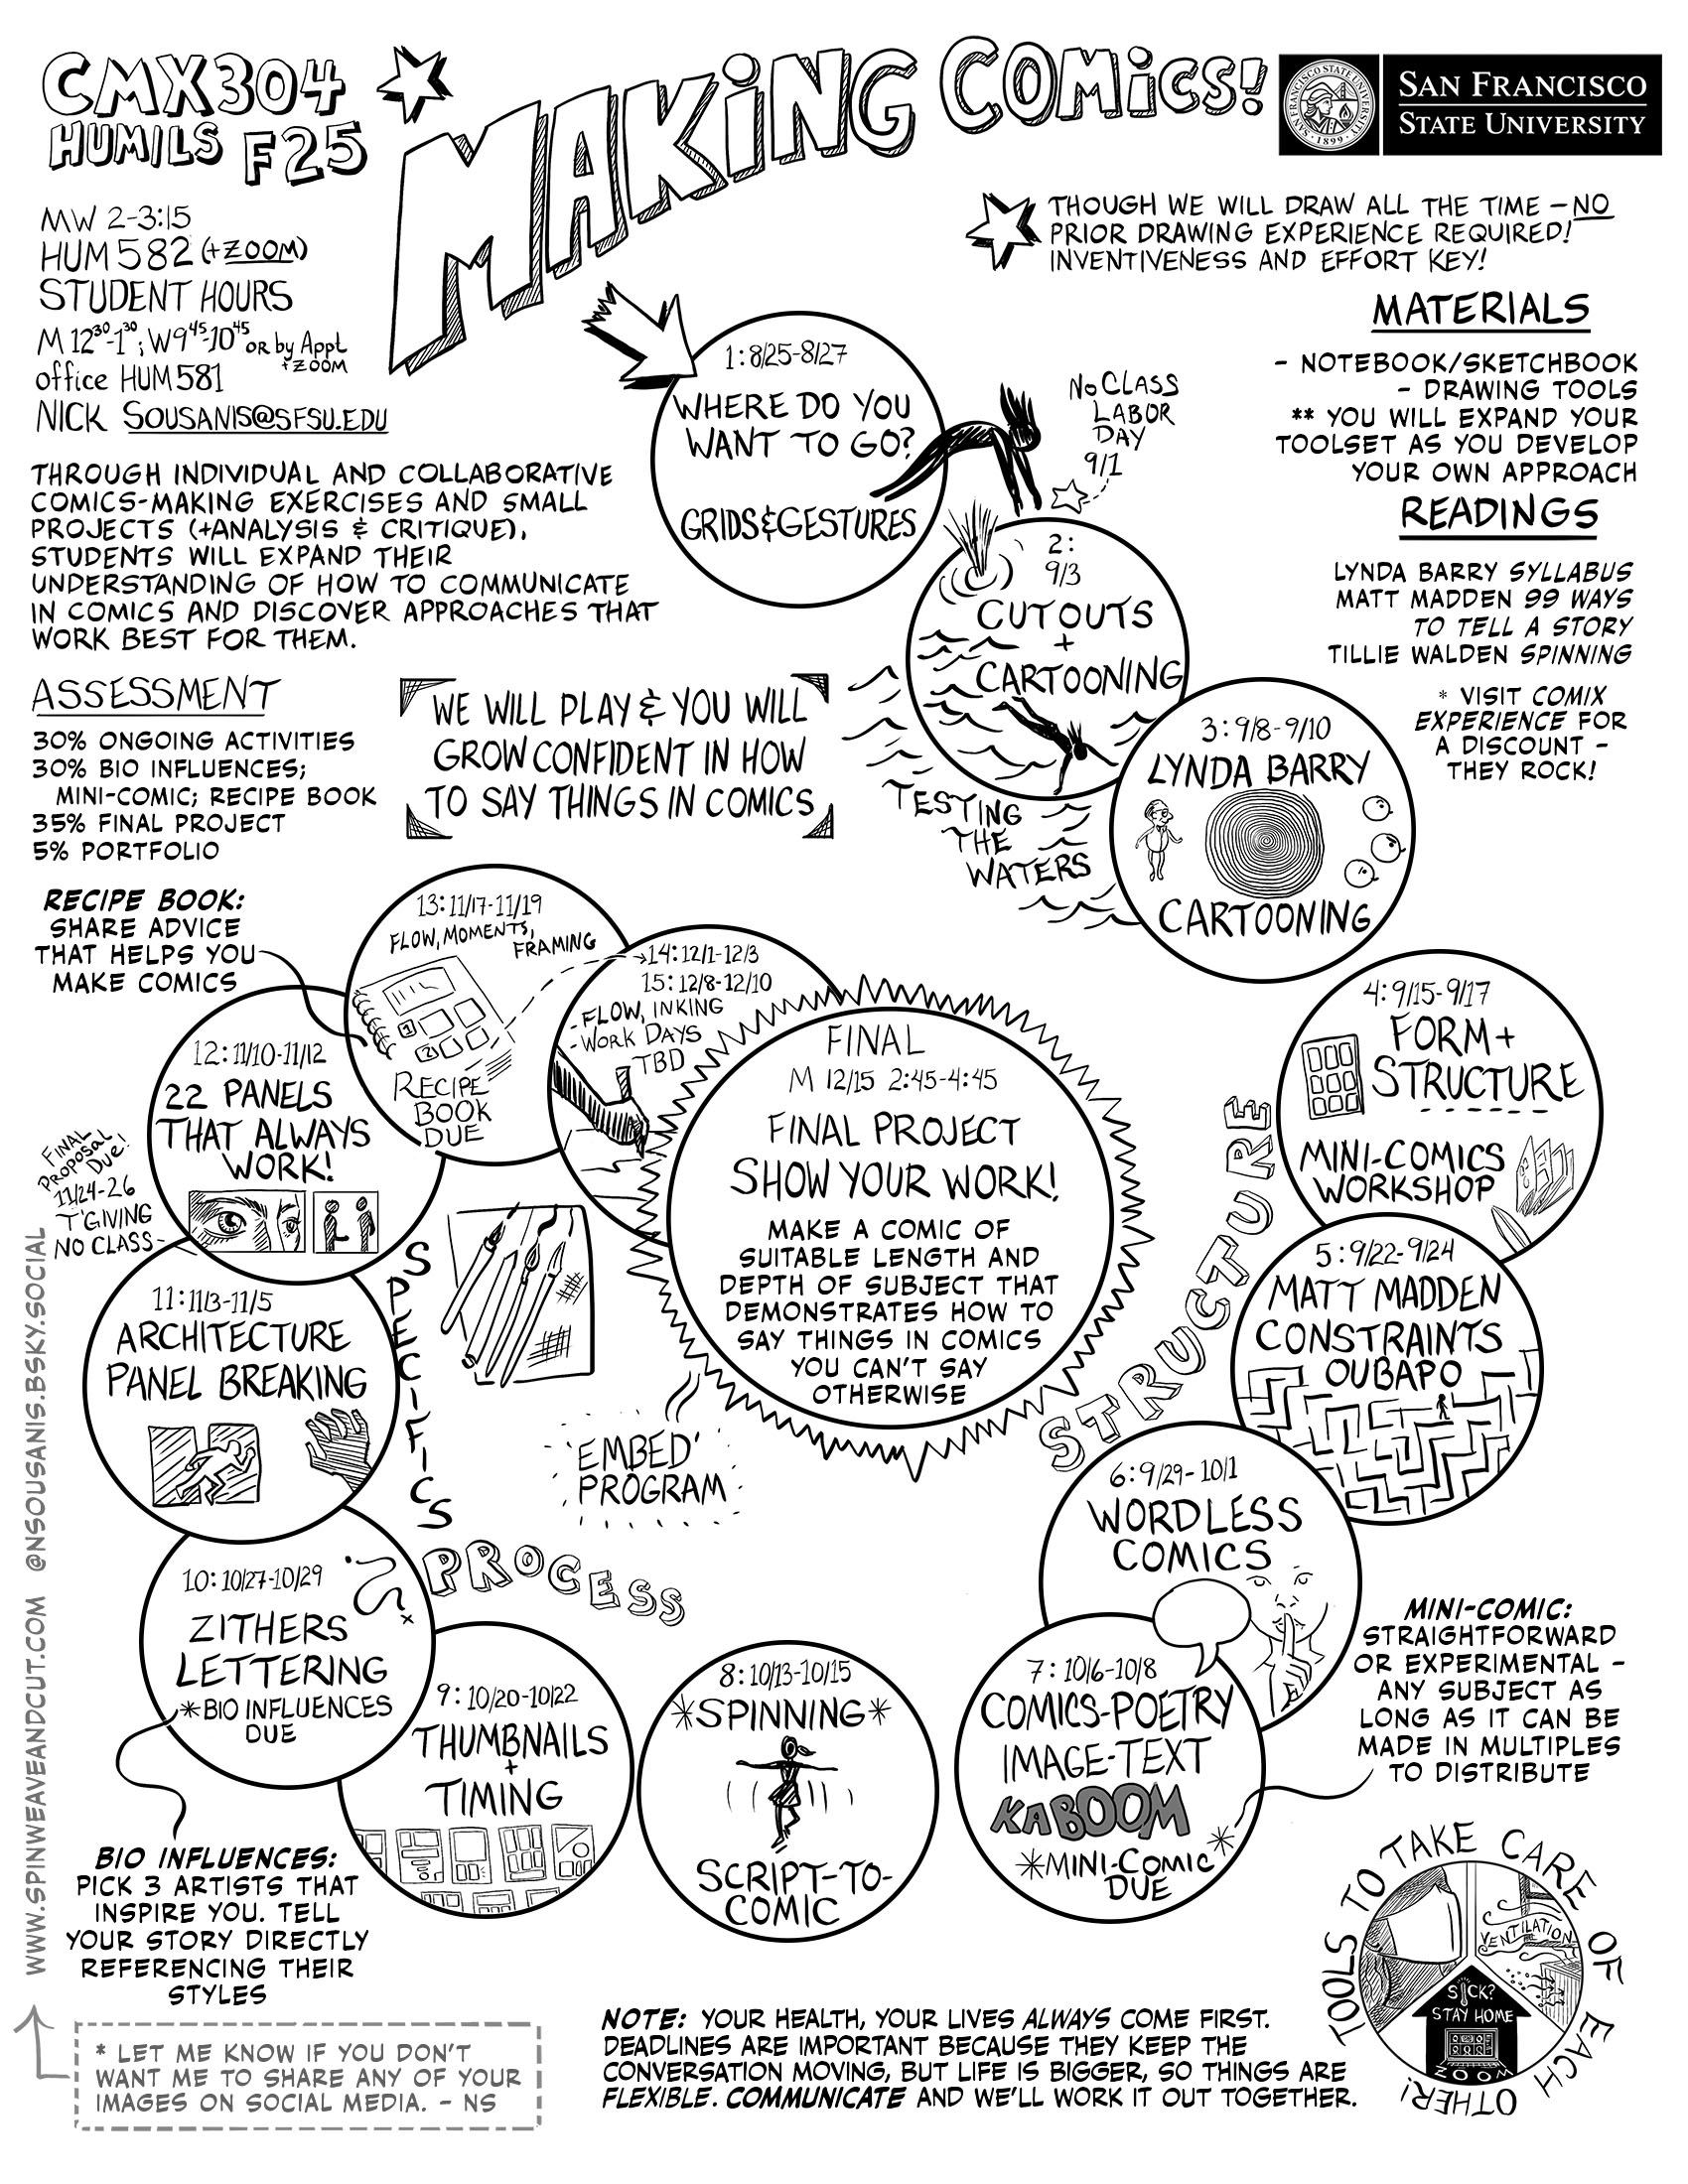 CMX304
HUM/LS F25
MAKING COMICS!
SAN FRANCISCO STATE UNIVERSITY
1899
SAN FRANCISCO
STATE UNIVERSITY
MW 2-3:15
HUM 582 (+ZOOM)
STUDENT HOURS
M 12³⁰-1³⁰; W 9⁴⁵-10⁴⁵ OR by Appt
+ZOOM
office HUM 581
NICK SOUSANIS@SFSU.EDU
THOUGH WE WILL DRAW ALL THE TIME – NO
PRIOR DRAWING EXPERIENCE REQUIRED!
INVENTIVENESS AND EFFORT KEY!
THROUGH INDIVIDUAL AND COLLABORATIVE
COMICS-MAKING EXERCISES AND SMALL
PROJECTS (+ANALYSIS & CRITIQUE),
STUDENTS WILL EXPAND THEIR
UNDERSTANDING OF HOW TO COMMUNICATE
IN COMICS AND DISCOVER APPROACHES THAT
WORK BEST FOR THEM.
MATERIALS
- NOTEBOOK/SKETCHBOOK
- DRAWING TOOLS
** YOU WILL EXPAND YOUR
TOOLSET AS YOU DEVELOP
YOUR OWN APPROACH
READINGS
LYNDA BARRY SYLLABUS
MATT MADDEN 99 WAYS
TO TELL A STORY
TILLIE WALDEN SPINNING
* VISIT COMIX
EXPERIENCE FOR
A DISCOUNT –
THEY ROCK!
ASSESSMENT
30% ONGOING ACTIVITIES
30% BIO INFLUENCES;
MINI-COMIC; RECIPE BOOK
35% FINAL PROJECT
5% PORTFOLIO
WE WILL PLAY & YOU WILL
GROW CONFIDENT IN HOW
TO SAY THINGS IN COMICS
1: 8/25-8/27
WHERE DO YOU
WANT TO GO?
GRIDS & GESTURES
NO CLASS
LABOR
DAY
9/1
2:
9/3
CUTOUTS
+
CARTOONING
TESTING
THE
WATERS
3: 9/8-9/10
LYNDA BARRY
CARTOONING
4: 9/15-9/17
FORM +
STRUCTURE
MINI-COMICS
WORKSHOP
STRUCTURE
5: 9/22-9/24
MATT MADDEN
CONSTRAINTS
OUBAPO
6: 9/29-10/1
WORDLESS
COMICS
7: 10/6-10/8
COMICS-POETRY
IMAGE-TEXT
KABOOM
*MINI-COMIC*
DUE
MINI-COMIC:
STRAIGHTFORWARD
OR EXPERIMENTAL –
ANY SUBJECT AS
LONG AS IT CAN BE
MADE IN MULTIPLES
TO DISTRIBUTE
8: 10/13-10/15
*SPINNING*
SCRIPT-TO-
COMIC
PROCESS
9: 10/20-10/22
THUMBNAILS
+
TIMING
10: 10/27-10/29
ZITHERS
LETTERING
*BIO INFLUENCES
DUE
BIO INFLUENCES:
PICK 3 ARTISTS THAT
INSPIRE YOU. TELL
YOUR STORY DIRECTLY
REFERENCING THEIR
STYLES
SPECIFICS
11: 11/3-11/5
ARCHITECTURE
PANEL BREAKING
12: 11/10-11/12
22 PANELS
THAT ALWAYS
WORK!
FINAL
PROPOSAL
DUE!
11/24-26
T'GIVING
NO CLASS-
RECIPE BOOK:
SHARE ADVICE
THAT HELPS YOU
MAKE COMICS
13: 11/17-11/19
FLOW, MOMENTS,
FRAMING
1
2
RECIPE
BOOK
DUE
14: 12/1-12/3
15: 12/8-12/10
- FLOW, INKING
- WORK DAYS
TBD
FINAL
M 12/15 2:45-4:45
FINAL PROJECT
SHOW YOUR WORK!
MAKE A COMIC OF
SUITABLE LENGTH AND
DEPTH OF SUBJECT THAT
DEMONSTRATES HOW TO
SAY THINGS IN COMICS
YOU CAN'T SAY
OTHERWISE
'EMBED'
PROGRAM
WWW.SPINWEAVEANDCUT.COM @NSOUSANIS.BSKY.SOCIAL
* LET ME KNOW IF YOU DON'T
WANT ME TO SHARE ANY OF YOUR
IMAGES ON SOCIAL MEDIA. – NS
NOTE: YOUR HEALTH, YOUR LIVES ALWAYS COME FIRST.
DEADLINES ARE IMPORTANT BECAUSE THEY KEEP THE
CONVERSATION MOVING, BUT LIFE IS BIGGER, SO THINGS ARE
FLEXIBLE. COMMUNICATE AND WE'LL WORK IT OUT TOGETHER.
TOOLS TO TAKE CARE OF EACH OTHER!
VENTILATION
SICK?
STAY HOME
ZOOM